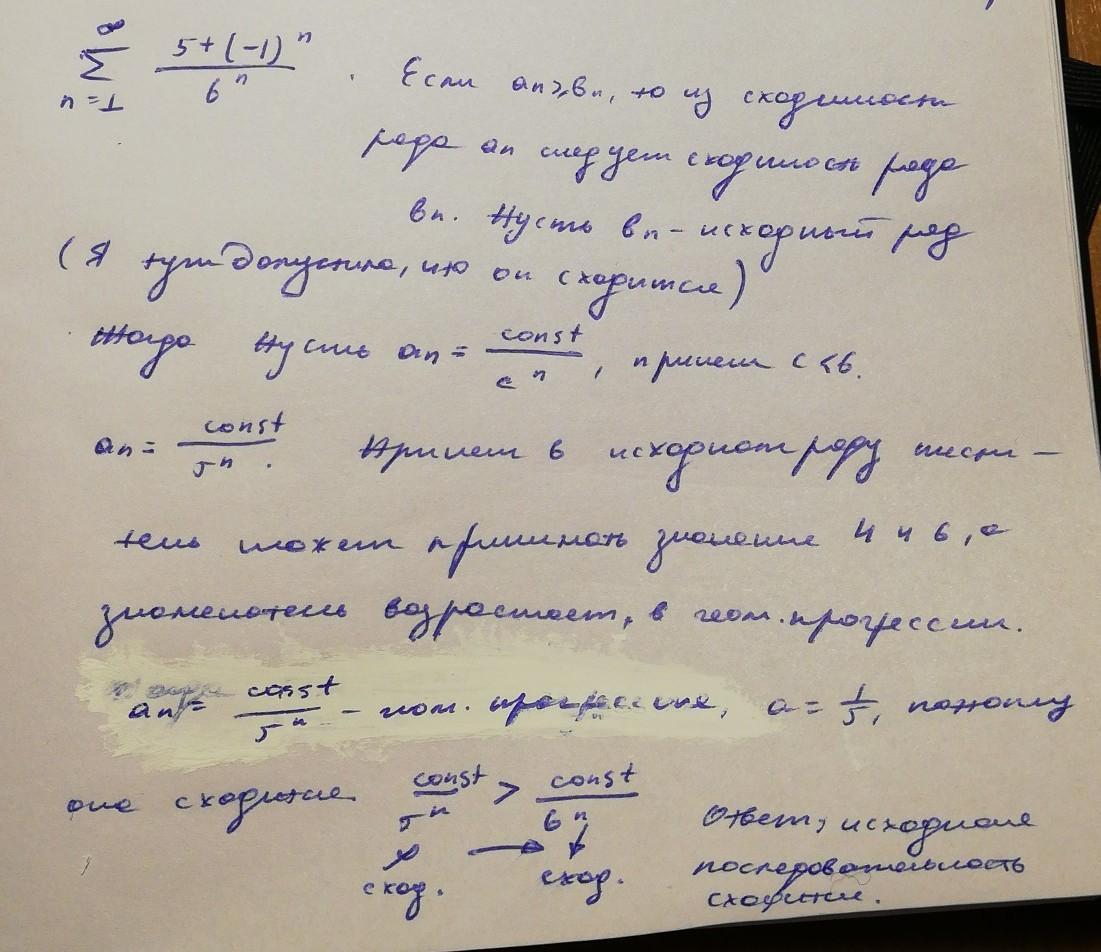 ∞
Σ 5+(-1)ⁿ / 6ⁿ . Если aₙ ≥ bₙ, то из сходимости
n=1
ряда aₙ следует сходимость ряда
bₙ. Пусть bₙ - исходный ряд
(Я тут допустила, что он сходится)
Тогда Пусть aₙ = const / cⁿ, причем c < 6.
aₙ = const / 5ⁿ. Причем в исходном ряду числи-
тель может принимать значение 4 и 6, а
знаменатель возрастает, в геом. прогрессии.
aₙ = const / 5ⁿ - геом. прогрессия, a = 1/5, поэтому
она сходится const / 5ⁿ > const / 6ⁿ
Ответ, исходная
сход. → сход.
последовательность
сходится.